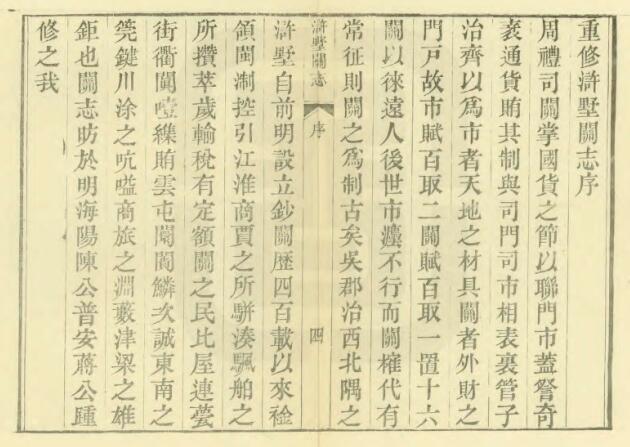 重修滸墅關志序
周禮司關掌國貨之節以聯門市蓋詧奇
衺通貨賄其制與司門司市相表裏管子
治齊以爲市者天地之材具關者外財之
門戸故市賦百取二關賦百取一置十六
關以徠遠人後世市廛不行而關榷代有
常征則關之爲制古矣吳郡治西北隅之
滸墅關志
序
四
滸墅自前明設立鈔關歴四百載以來襟
領閩淛控引江淮商賈之所駢湊颿舶之
所攢萃歲輸稅有定額關之民比屋連甍
街衢闐噎賄雲屯闤鱗次誠東南之
筦鍵川涂之吭嗌商旅之淵藪津梁之雄
鉅也關志昉於明海陽陳公普安蔣公踵
修之我